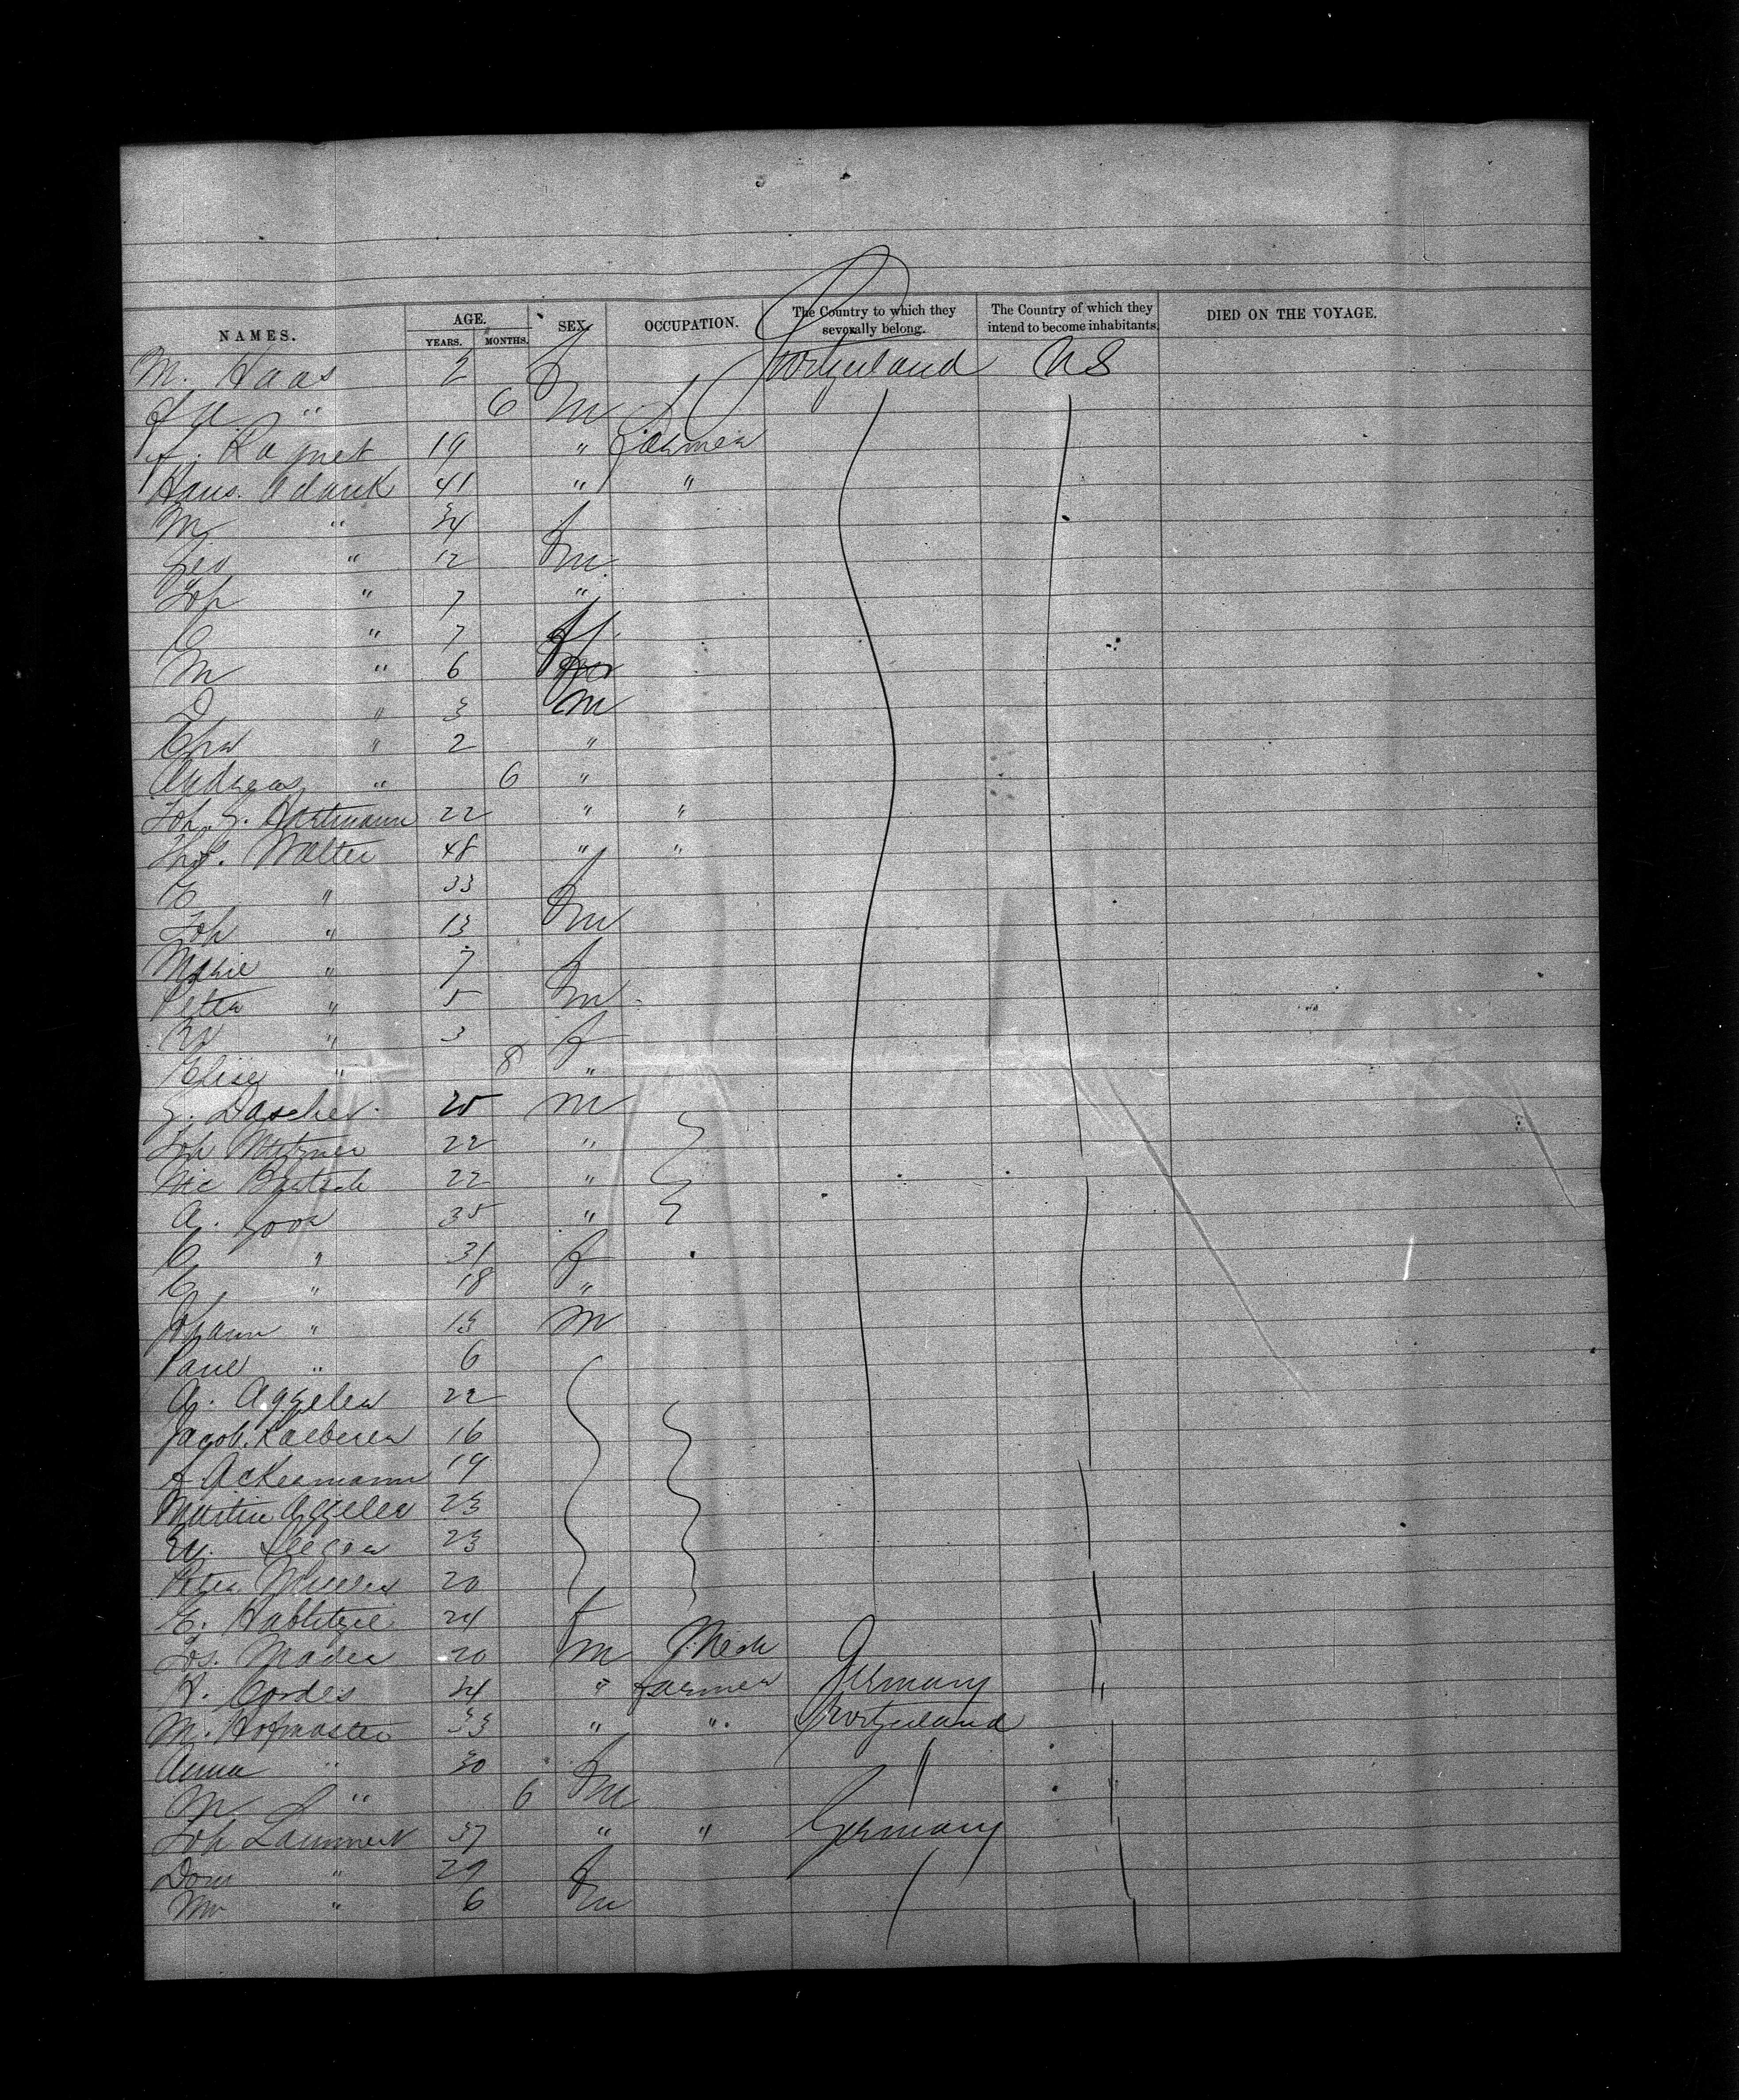 NAMES. AGE. YEARS. MONTHS. SEX. OCCUPATION. The Country to which they severally belong. The Country of which they intend to become inhabitants. DIED ON THE VOYAGE.
M. Haas 2 f Switzerland US
" 6 m
Ragnet 19 " Farmer
Hans. Adank 41 " "
M " 34 f
Leo " 12 m
Joh " 7 "
C " 7 f
M " 6
D " 3 m
Chr " 2 "
Andreas " 6 "
Joh. G. Hartmann 22 " "
Walter 48 " "
E " 33 f
Joh " 13 m
Marie " 7 f
Peter " 5 m
" 3 f
Elise " 8 "
G. Dascher 25 m
Joh Metzner 22 "
Nic Bartsch 22 "
A. 35 "
C " 31 f
C " 18 "
Johann " 13 m
Paul " 6
A. Aggeler 22
Jacob. 16
Ackermann 19
Martin Aggeler 23
23
Peter Muller 20
E. Hablitzel 24 f
Jos. Mader 20 m Mech
H. Cordes 34 " Farmer Germany
M. Hofmaster 33 " " Switzerland
Anna " 30 f "
M. " 6 m
Joh Lammert 37 " " Germany
Dom " 29 f
" 6 m